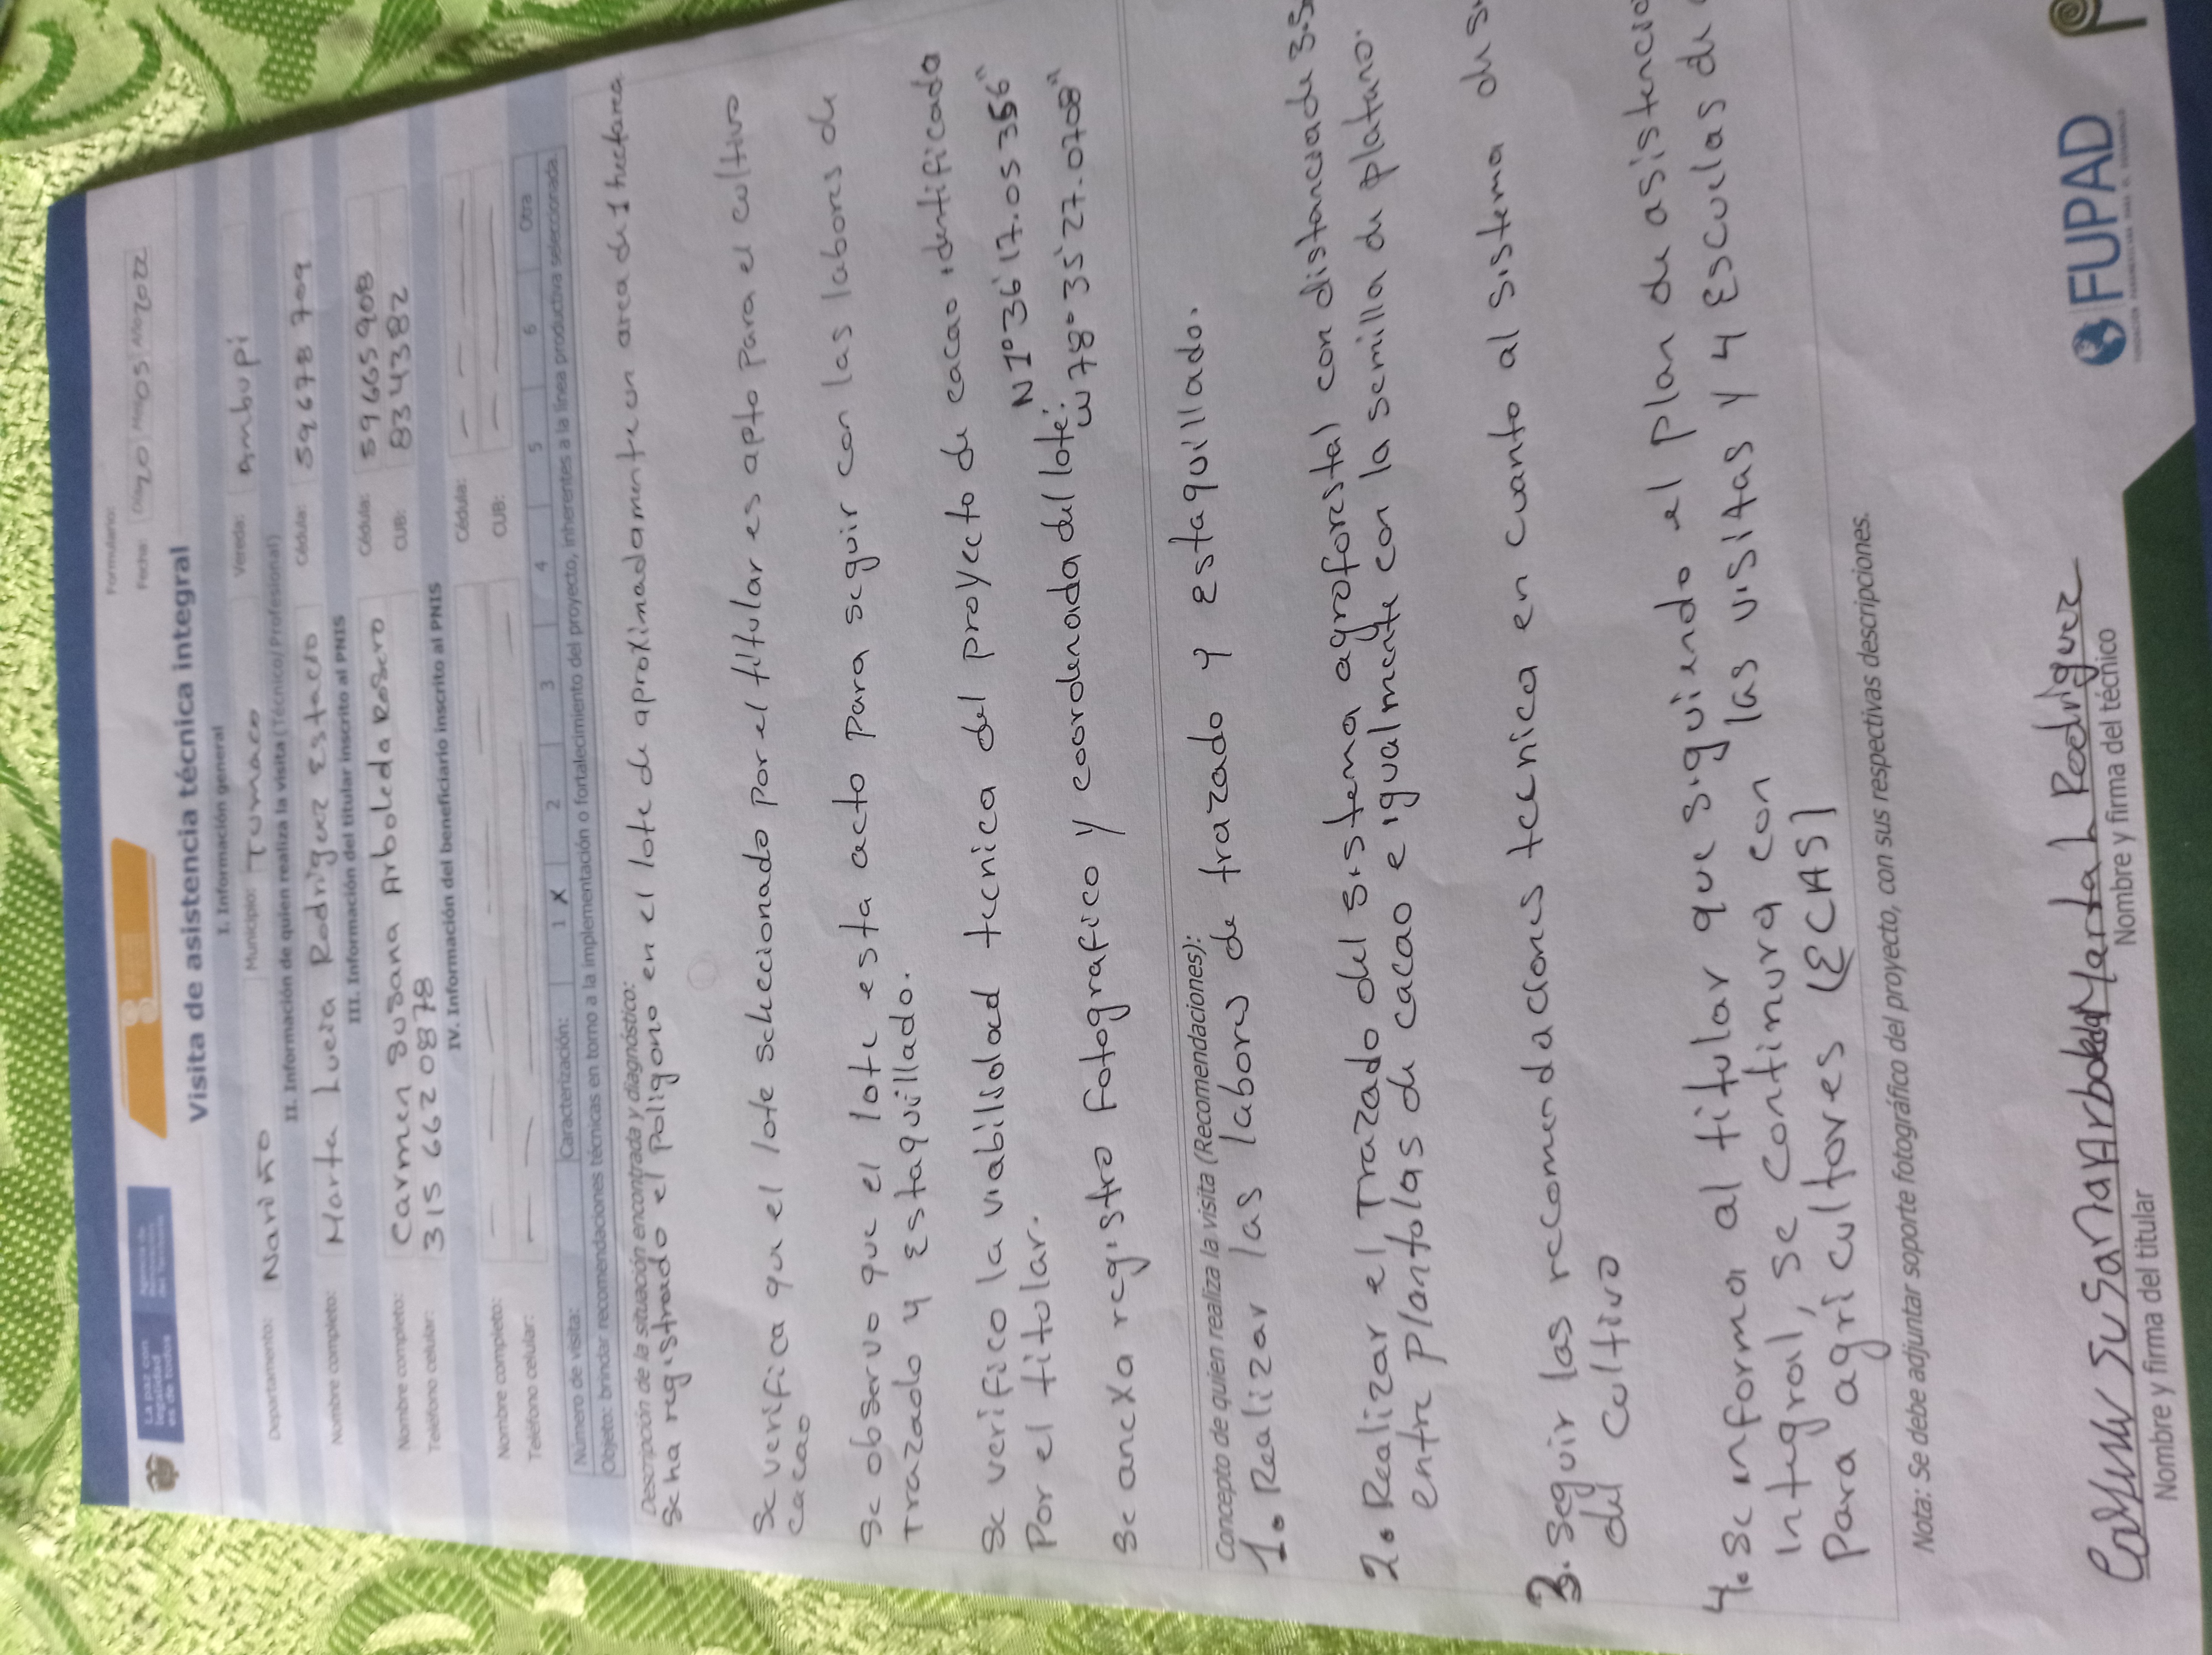 La paz con
legalidad
es de todos
Formulario:
Fecha: Día 20 Mes 05 Año 2022
Visita de asistencia técnica integral
I. Información general
Departamento: Nariño Municipio: Tumaco Vereda: Ambupi
II. Información de quien realiza la visita (Técnico/Profesional)
Nombre completo: Marta Lucia Rodriguez Estacio Cédula: 59678709
III. Información del titular inscrito al PNIS
Nombre completo: Carmen Susana Arboleda Rosero Cédula: 59665908
Teléfono celular: 315 662 0878 CUB: 834382
IV. Información del beneficiario inscrito al PNIS
Nombre completo: Cédula:
Teléfono celular: CUB:
Número de visita: Caracterización: 1 X 2 3 4 5 6 Otra
Objeto: brindar recomendaciones técnicas en torno a la implementación o fortalecimiento del proyecto, inherentes a la línea productiva seleccionada.
Descripción de la situación encontrada y diagnóstico:
Se ha registrado el Poligono en el lote de aproximadamente un area de 1 hectarea
Se verifica que el lote seleccionado por el titular es apto para el cultivo
cacao
Se observo que el lote esta acto para seguir con las labores de
Trazado y Estaquillado.
Se verifico la viabilidad tecnica del proyecto de cacao identificado
Por el titular. N1°36'17.05356"
Se anexa registro fotografico y coordenada del lote: W78°35'27.0708"
Concepto de quien realiza la visita (Recomendaciones):
1. Realizar las labores de trazado y estaquillado.
2. Realizar el Trazado del sistema agroforestal con distancia de 3.5
entre plantolas de cacao e igualmente con la semilla de platano.
3. Seguir las recomendaciones tecnica en cuanto al sistema de
del cultivo
4. se informa al titular que siguiendo el plan de asistencia
integral, se continura con las visitas y 4 Escuelas de
Para agricultores (ECAS)
Nota: Se debe adjuntar soporte fotográfico del proyecto, con sus respectivas descripciones.
Carmen Susana Arboleda Marta L Rodriguez
Nombre y firma del titular Nombre y firma del técnico
FUPAD